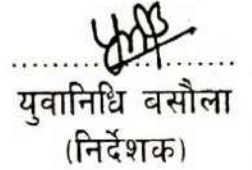 युवानिधि बसौला
(निर्देशक)